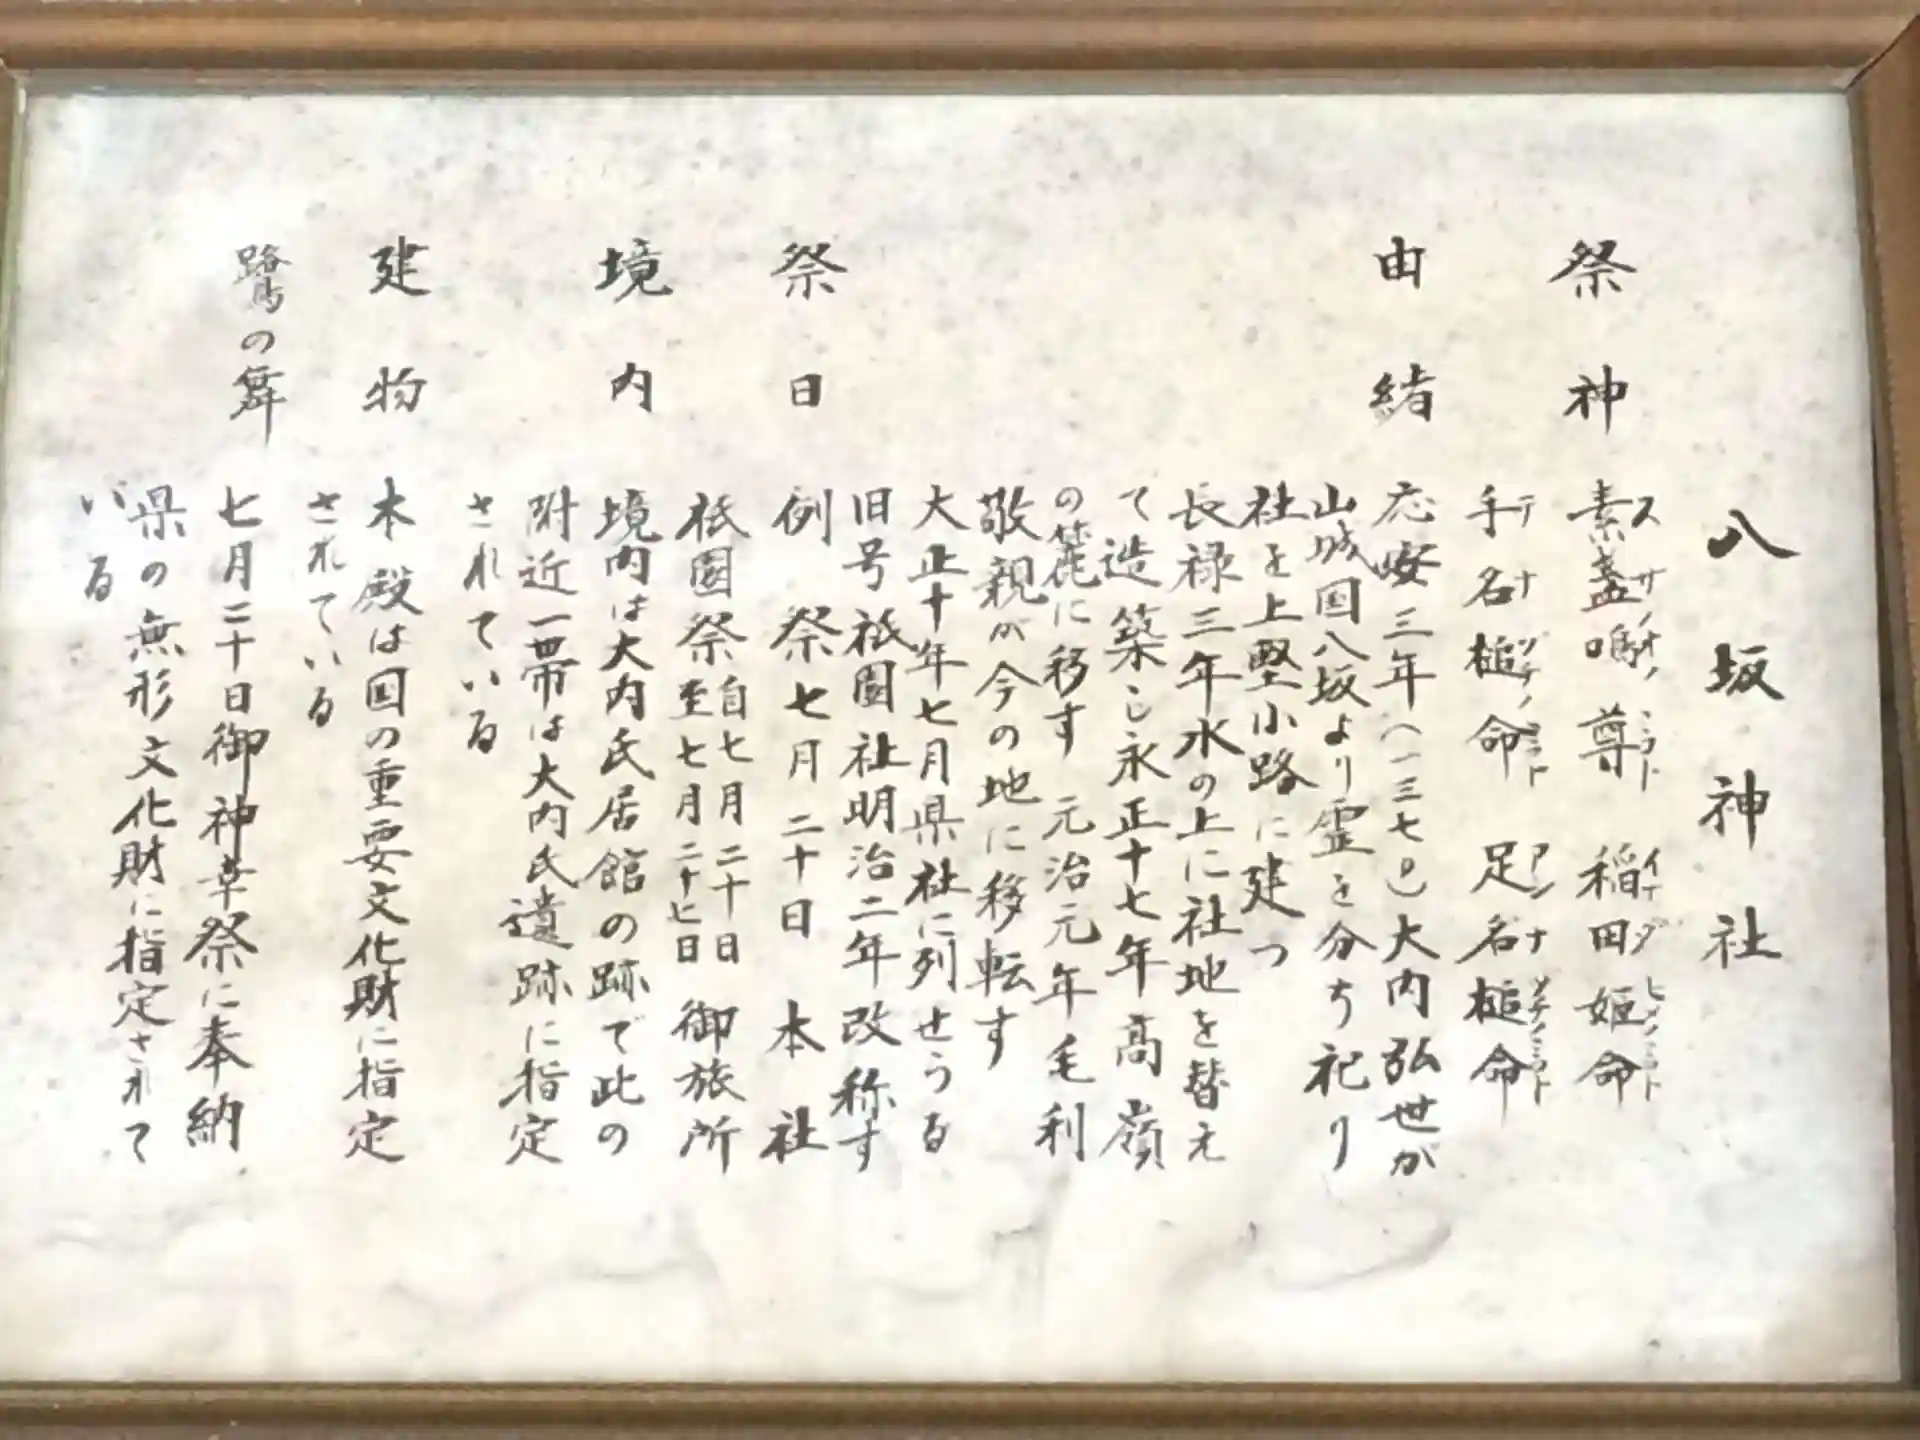 八坂神社
祭神 素盞嗚尊 稲田姫命
手名槌命 足名槌命
由緒 応安三年(一三七〇)大内弘世が
山城国八坂より霊を分ち祀り
社を上竪小路に建つ
長禄三年水の上に社地を替え
て造築し永正十七年高嶺
の麓に移す 元治元年毛利
敬親が今の地に移転す
大正十年七月県社に列せらる
旧号祇園社明治二年改称す
祭日 例祭七月二十日 本社
祇園祭 自七月二十日 至七月二十七日 御旅所
境内 境内は大内氏居館の跡で此の
附近一帯は大内氏遺跡に指定
されている
建物 本殿は国の重要文化財に指定
されている
鷺の舞 七月二十日御神幸祭に奉納
県の無形文化財に指定されて
いる